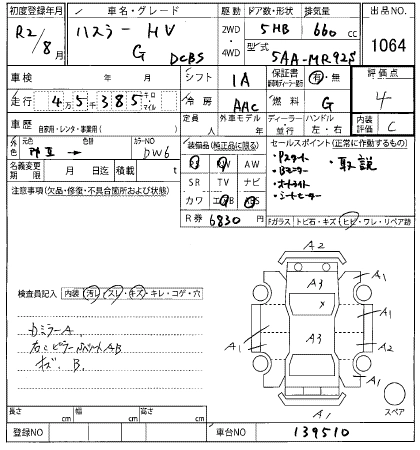 初度登録年月 車名・グレード 駆動 ドア数・形状 排気量 出品NO.
R2/8月 ハスラー HV G DCBS 2WD 4WD 5HB 660cc 1064
型式 5AA-MR92S
車検 年 月 シフト IA 保証書 有・無 評価点
走行 4万5千385キロ マイル 冷房 AAC 燃料 G 4
車歴 自家用・レンタ・事業用( ) 定員 人 外車モデル 年 ディーラー・並行 ハンドル 左・右 内装評価 C
外色 元色 色替 カラーNO DW6
装備品(純正品に限る) セールスポイント(正常に作動するもの)
名義変更期限 月 日迄 積載 t
PS PW AW
・Pスタート ・取説
・Bモニター
SR TV ナビ
・オートライト
注意事項(欠品・修復・不具合箇所および状態)
カワ エアB ABS
・シートヒーター
R券 6830円
Fガラス トビ石・キズ・ヒビ・ワレ・リペア跡
A2
A3 A1
検査員記入 内装 汚れ・スレ・キズ・キレ・コゲ・穴
×
A1
カミラーA
A1 A3 A2
キズ、B.
A1
A1
スペア
長さ cm 幅 cm 高さ cm
登録NO 車台NO 139510